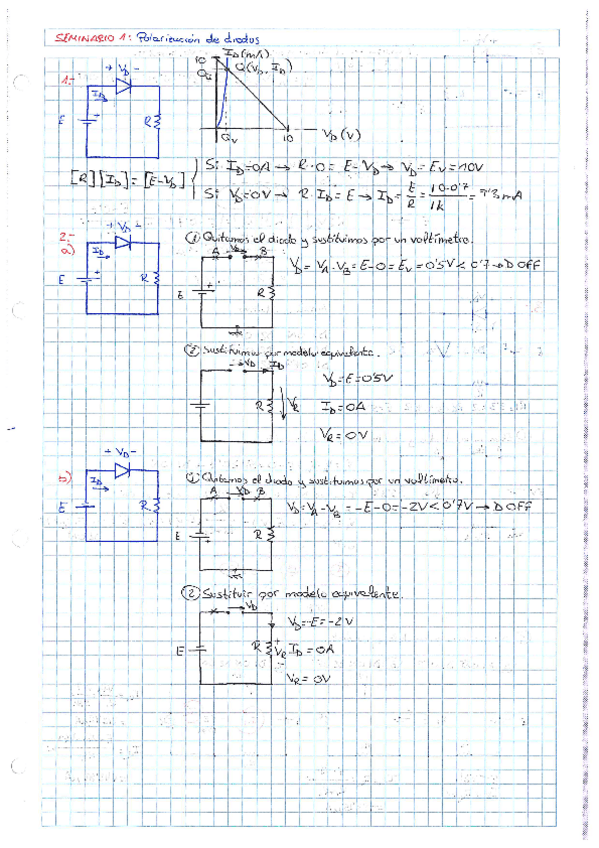 SEMINARIO 1: Polarización de diodos
1.-
+ VD -
ID
E
+
R
ID(mA)
10
QI
Q(VD, ID)
QV
10
VD(V)
[R][ID]=[E-VD]
Si ID=0A → R·0 = E-VD → VD = EV = 10V
Si VD=0V → R·ID = E → ID = E/R = 10-0'7/1k = 9'3mA
2.-
a)
+ VD -
ID
E
+
R
① Quitamos el diodo y sustituimos por un voltímetro.
A VD B
E
+
R
VD = VA-VB = E-0 = EV = 0'5V < 0'7 → D OFF
② Sustituimos por modelo equivalente.
VD ID
R
VR
VD=E=0'5V
ID=0A
VR=0V
b)
+ VD -
ID
E
R
① Quitamos el diodo y sustituimos por un voltímetro.
A VD B
E
+
R
VD=VA-VB = -E-0=-2V<0'7V → D OFF
② Sustituir por modelo equivalente.
VD
E
R
+
VR
VD=-E=-2V
ID=0A
VR=0V